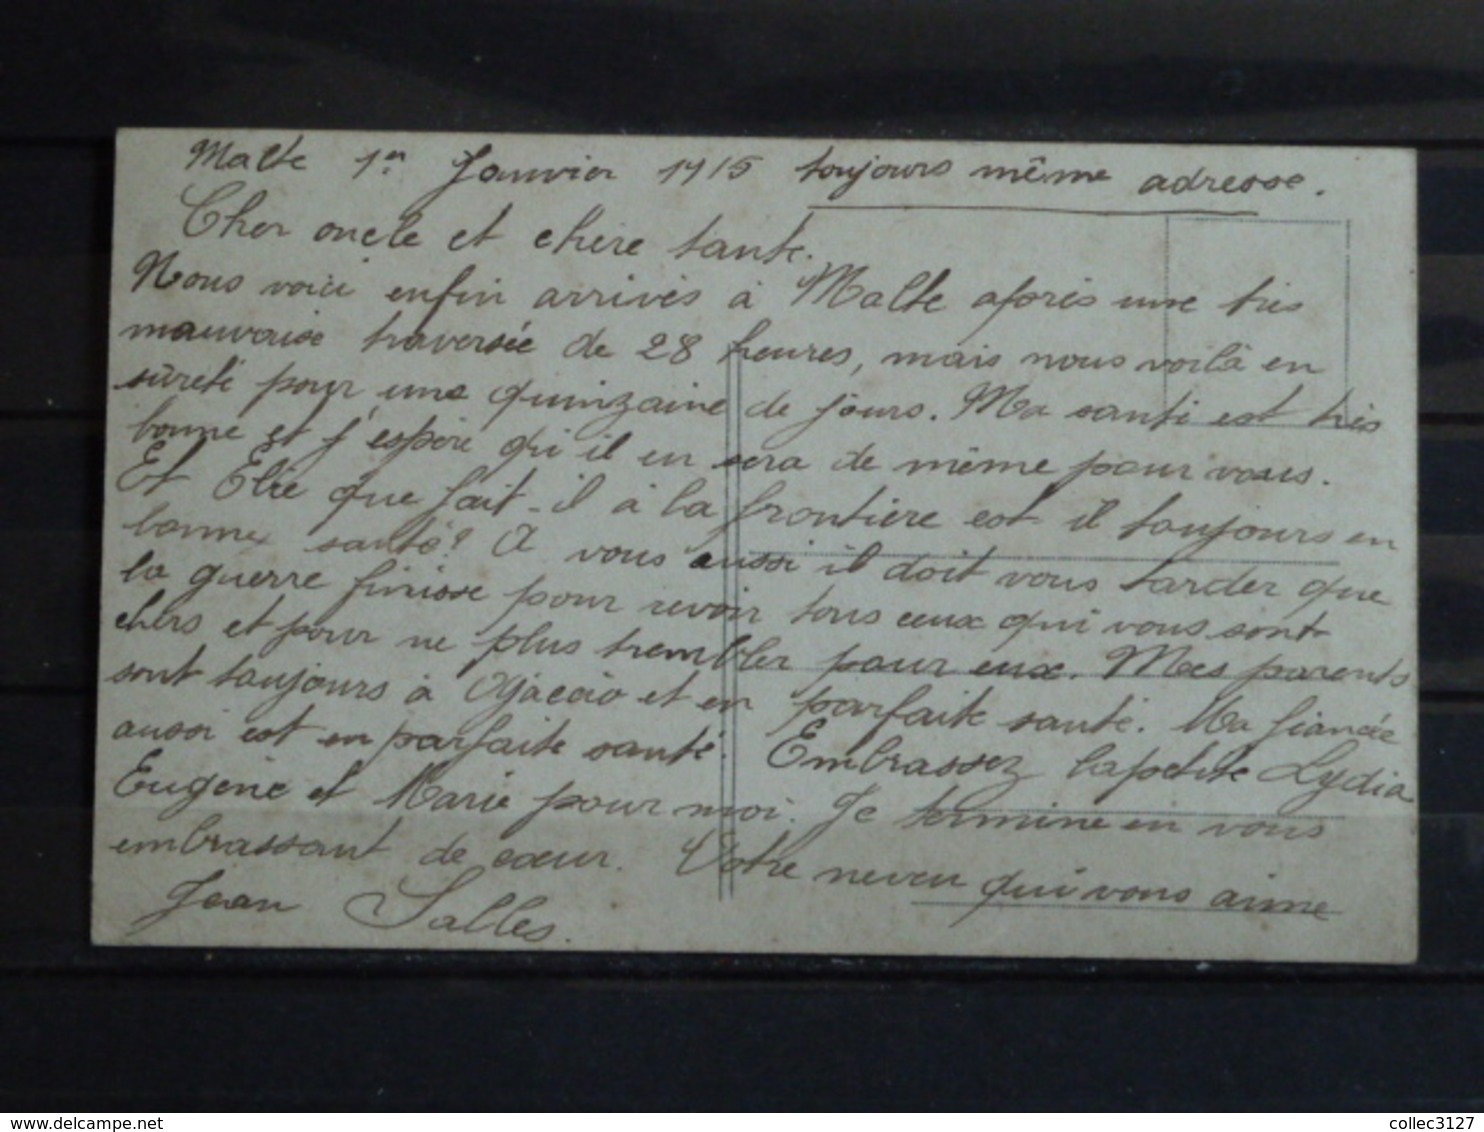 Malte 1er Janvier 1915 toujours même adresse.
Cher oncle et chère tante.
Nous voici enfin arrivés à Malte après une très
mauvaise traversée de 28 heures, mais nous voilà en
sûreté pour une quinzaine de jours. Ma santé est très
bonne et j'espère qu'il en sera de même pour vous.
Et Elie que fait-il à la frontière est il toujours en
bonne santé? À vous aussi il doit vous tarder que
la guerre finisse pour revoir tous ceux qui vous sont
chers et pour ne plus trembler pour eux. Mes parents
sont toujours à Ajaccio et en parfaite santé. Ma fiancée
aussi est en parfaite santé. Embrassez la petite Lydia
Eugénie et Marie pour moi. Je termine en vous
embrassant de cœur. Votre neveu qui vous aime
Jean Salles.
delcampe.net
collec3127